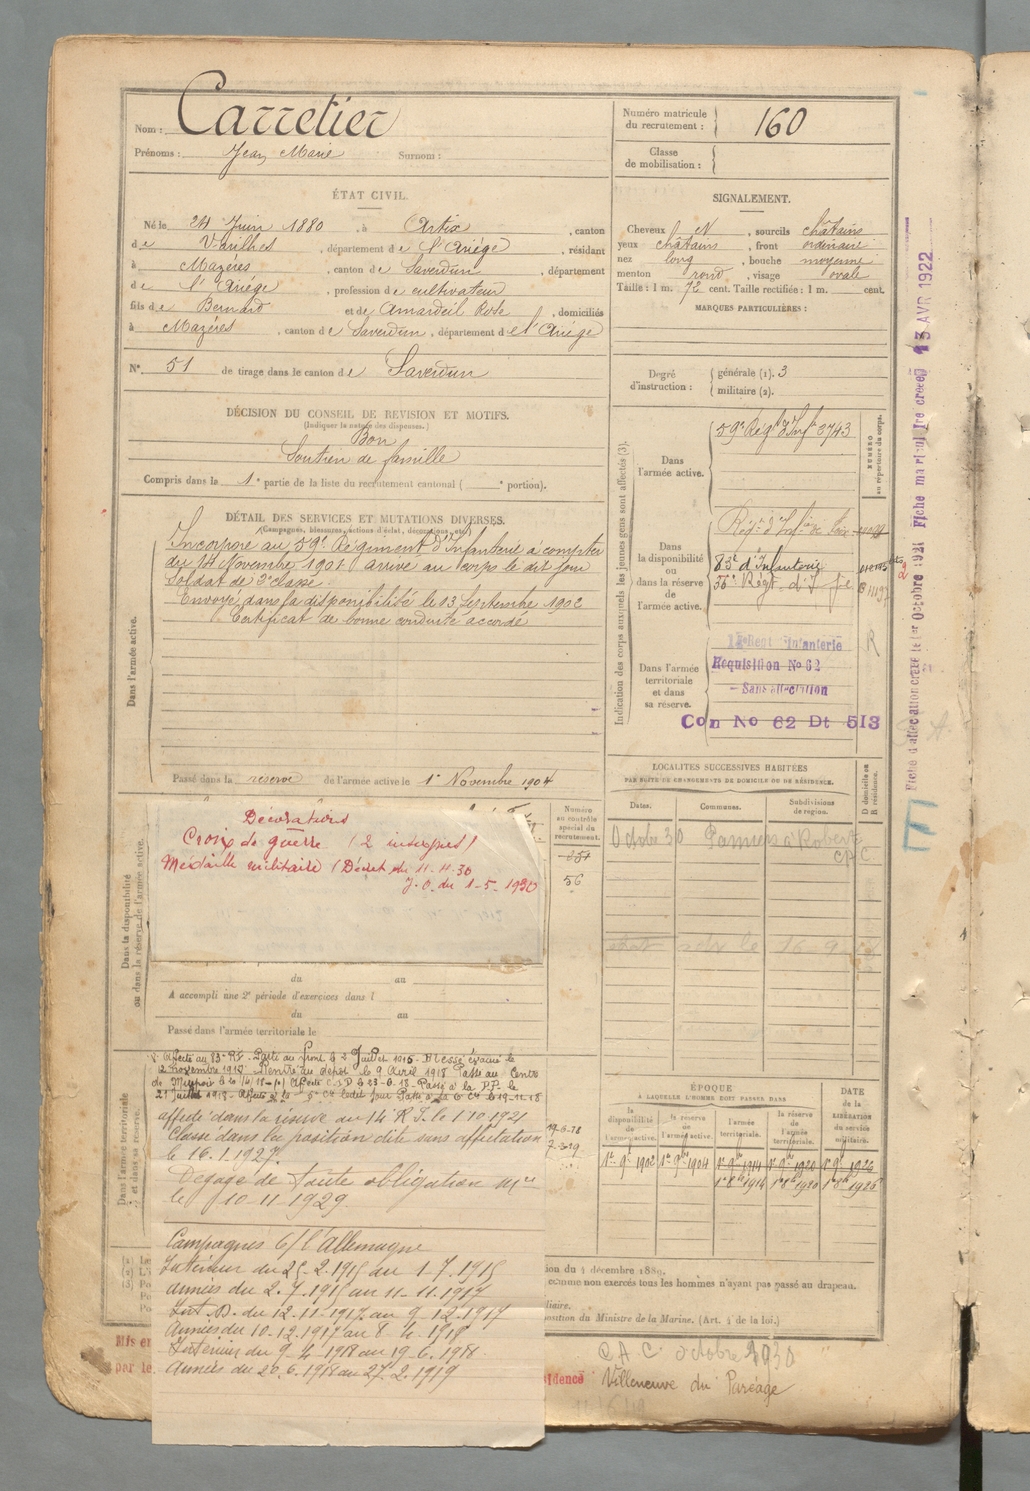 Nom : Carretier
Prénoms : Jean Marie Surnom :
Numéro matricule du recrutement : 160
Classe de mobilisation :
ÉTAT CIVIL.
Né le 24 Juin 1880, à Artix, canton
de Varilhes, département de l'Ariège, résidant
à Mazères, canton de Saverdun, département
de l'Ariège, profession de cultivateur
fils de Bernard et de Amardeil Rose, domiciliés
à Mazères, canton de Saverdun, département de l'Ariège
N° 51 de tirage dans le canton de Saverdun
SIGNALEMENT.
Cheveux N, sourcils châtains
yeux châtains, front ordinaire
nez long, bouche moyenne
menton rond, visage ovale
Taille : 1 m. 72 cent. Taille rectifiée : 1 m. cent.
MARQUES PARTICULIÈRES :
Degré d'instruction : générale (1). 3
militaire (2).
DÉCISION DU CONSEIL DE REVISION ET MOTIFS.
(Indiquer la nature des dispenses.)
Bon
Soutien de famille
Compris dans la 1e partie de la liste du recrutement cantonal ( e portion).
DÉTAIL DES SERVICES ET MUTATIONS DIVERSES.
(Campagnes, blessures, actions d'éclat, décorations, etc.)
Dans l'armée active.
Incorporé au 59e Régiment d'Infanterie à compter
du 14 Novembre 1901 arrivé au corps le dit jour
Soldat de 2e classe.
Envoyé dans la disponibilité le 13 Septembre 1902
Certificat de bonne conduite accordé
Passé dans la réserve de l'armée active le 1er Novembre 1904
Indication des corps auxquels les jeunes gens sont affectés (3).
NUMÉRO au répertoire du corps.
Dans l'armée active.
59e Régt d'Infie 3743
Dans la disponibilité ou dans la réserve de l'armée active.
83e d'Infanterie
Dans l'armée territoriale et dans sa réserve.
Infanterie
Réquisition No 62
Sans affectation
Con No 62 Dt 513
R
Fiche d'affectation créée le 1er Octobre 1921 Fiche matricule créée 13 AVR 1922
LOCALITÉS SUCCESSIVES HABITÉES
PAR SUITE DE CHANGEMENTS DE DOMICILE OU DE RÉSIDENCE.
Dates. Communes. Subdivisions de région. D domicile ou R résidence.
Octobre 30 Pamiers
Dans la disponibilité ou dans la réserve de l'armée active.
Décorations
Croix de guerre
Médaille militaire (Décret du 11-11-30
J.O. du 1-5-1930
Numéro au contrôle spécial du recrutement.
56
du au
A accompli une 2e période d'exercices dans l
du au
Passé dans l'armée territoriale le
Dans l'armée territoriale et dans sa réserve.
Affecté au 83e RI. Parti au front le 2 Juillet 1915. Blessé évacué le
2 novembre 1917. Rentré au dépôt le 9 Avril 1918 Passé au Centre
affecté dans la réserve au 14e R.I. le 1.10.1921
Classé dans la position dite sans affectation
le 16.1.1927.
Dégagé de toute obligation mre
le 10-11-1929
Campagnes c/ l'Allemagne
Intérieur du 25.2.1915 au 1.7.1915
Armées du 2.7.1915 au 11.11.1917
Int. D. du 12.11.1917 au 9.12.1917
Armées du 10.12.1917 au 8.4.1918
Intérieur du 9.4.1918 au 19.6.1918.
Armées du 20.6.1918 au 27.2.1919
ÉPOQUE
À LAQUELLE L'HOMME DOIT PASSER DANS
la disponibilité de l'armée active. la réserve de l'armée active. l'armée territoriale. la réserve de l'armée territoriale.
DATE de la LIBÉRATION du service militaire.
1er 9bre 1902 1er 9bre 1904 1er 9bre 1914 1er 9bre 1920 1er 9bre 1926
1er 8bre 1914 1er 8bre 1920 1er 8bre 1926
comme non exercés tous les hommes n'ayant pas passé au drapeau.
position du Ministre de la Marine. (Art. 4 de la loi.)
octobre 1930
Villeneuve du Paréage